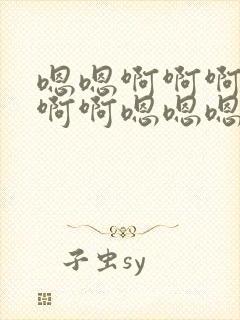 嗯嗯啊啊啊
啊啊嗯嗯嗯
子虫sy